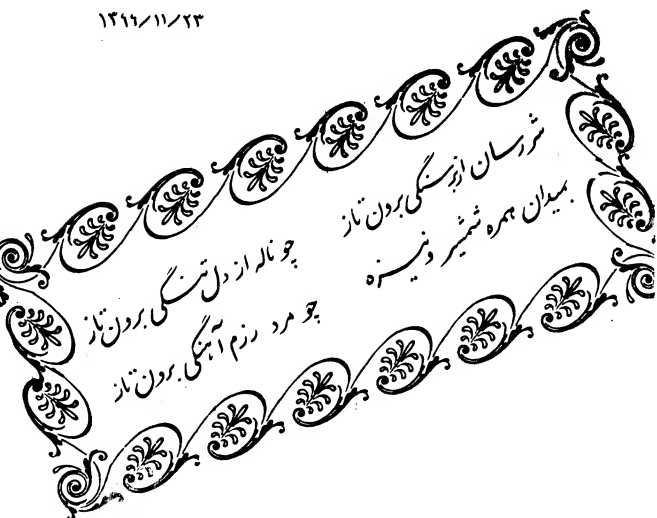 ۱۳۶۶/۱۱/۲۳
شررسان از سنگی برون تاز
چو ناله از دل تنگی برون تاز
بمیدان همره شمشیر و نیزه
چو مرد رزم آهنگی برون تاز